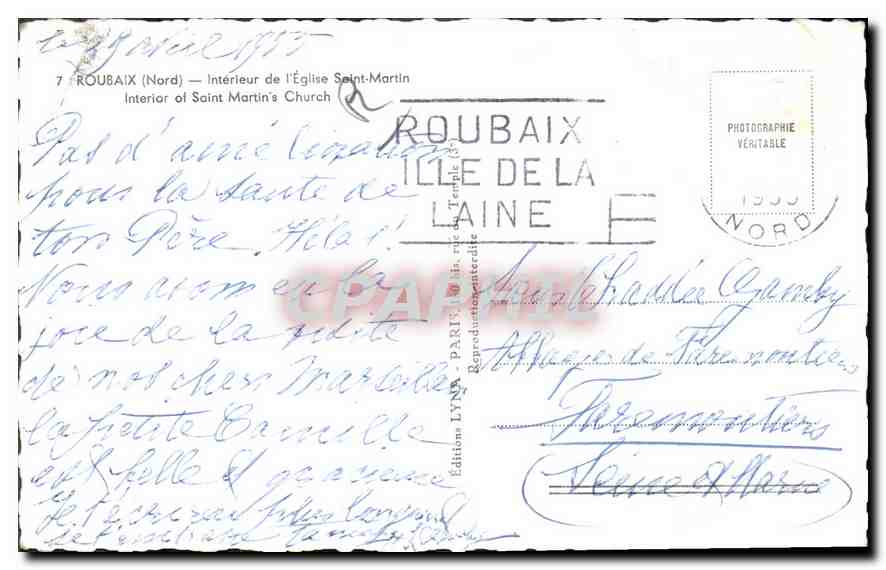 le 29 avril 1955
7 ROUBAIX (Nord) — Intérieur de l'Église Saint-Martin
Interior of Saint Martin's Church
Pas d'amélioration
pour la santé de
ton Père. Hélas!
Nous avons eu la
joie de la visite
de nos chers Marseille
la petite Camille
est belle et gracieuse
Je t'écrirai plus longue
ROUBAIX
ILLE DE LA
LAINE
PHOTOGRAPHIE
VÉRITABLE
NORD
Éditions LYNA - PARIS, bis, rue du Temple (3e)
Reproduction interdite
CPAPHIL
Gamby
de Faremoutiers
Faremoutiers
Seine et Marne